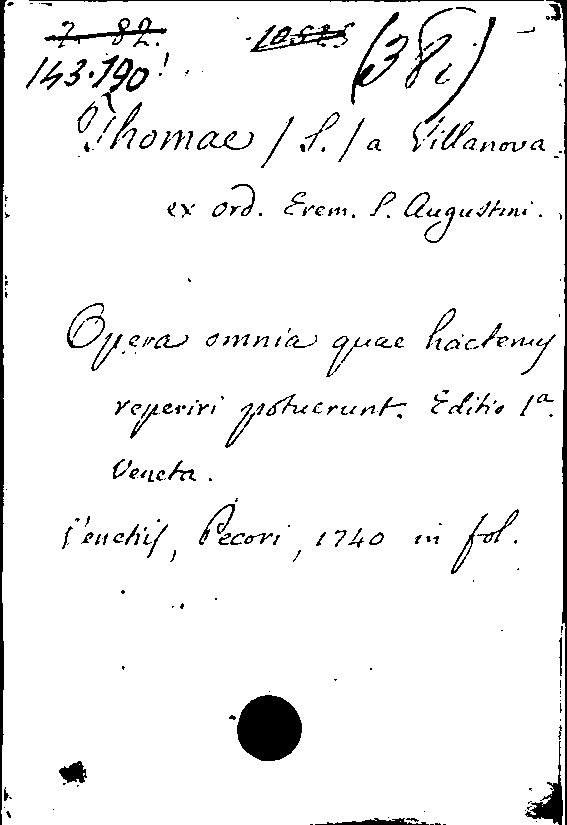 7. 82. 10525
143.190! (38i)
Thomae / S. / a Villanova
ex ord. Erem. S. Augustini.
Opera omnia quae hactenus
reperiri potuerunt. Editio 1a.
Veneta.
Venetiis, Pecori, 1740 in fol.